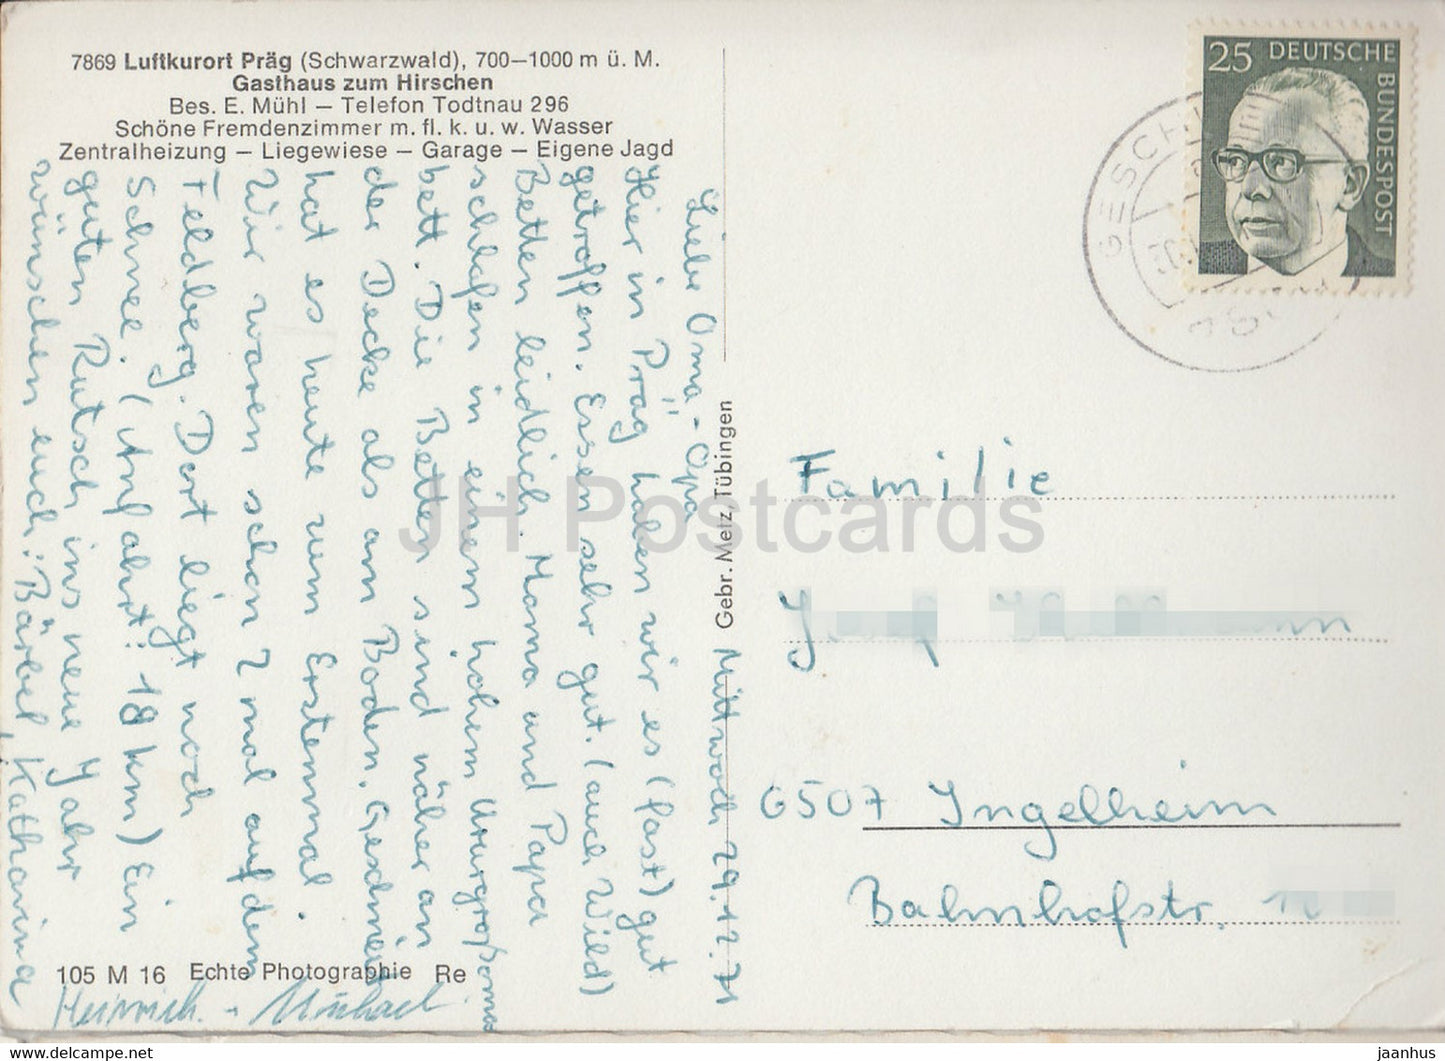 7869 Luftkurort Präg (Schwarzwald), 700–1000 m ü. M.
Gasthaus zum Hirschen
Bes. E. Mühl – Telefon Todtnau 296
Schöne Fremdenzimmer m. fl. k. u. w. Wasser
Zentralheizung – Liegewiese – Garage – Eigene Jagd
Mittwoch 29.12.71
Liebe Oma - Opa
Hier in Präg haben wir es (fast) gut
getroffen. Essen sehr gut. (auch Wild)
Betten leidlich. Mama und Papa
schlafen in einem hohem Ururgroßoma
bett. Die Betten sind näher an
der Decke als am Boden. Geschneit
hat es heute zum Erstenmal.
Wir waren schon 2 mal auf dem
Feldberg. Dort liegt noch
Schnee. (Anfahrt: 18 km) Ein
guten Rutsch ins neue Jahr
wünschen euch: Bärbel, Katharina
Heinrich - Michael
105 M 16 Echte Photographie Re
Gebr. Metz, Tübingen
25 DEUTSCHE
BUNDESPOST
Familie
6507 Ingelheim
Bahnhofstr.
JH Postcards
delcampe.net
jaanhus